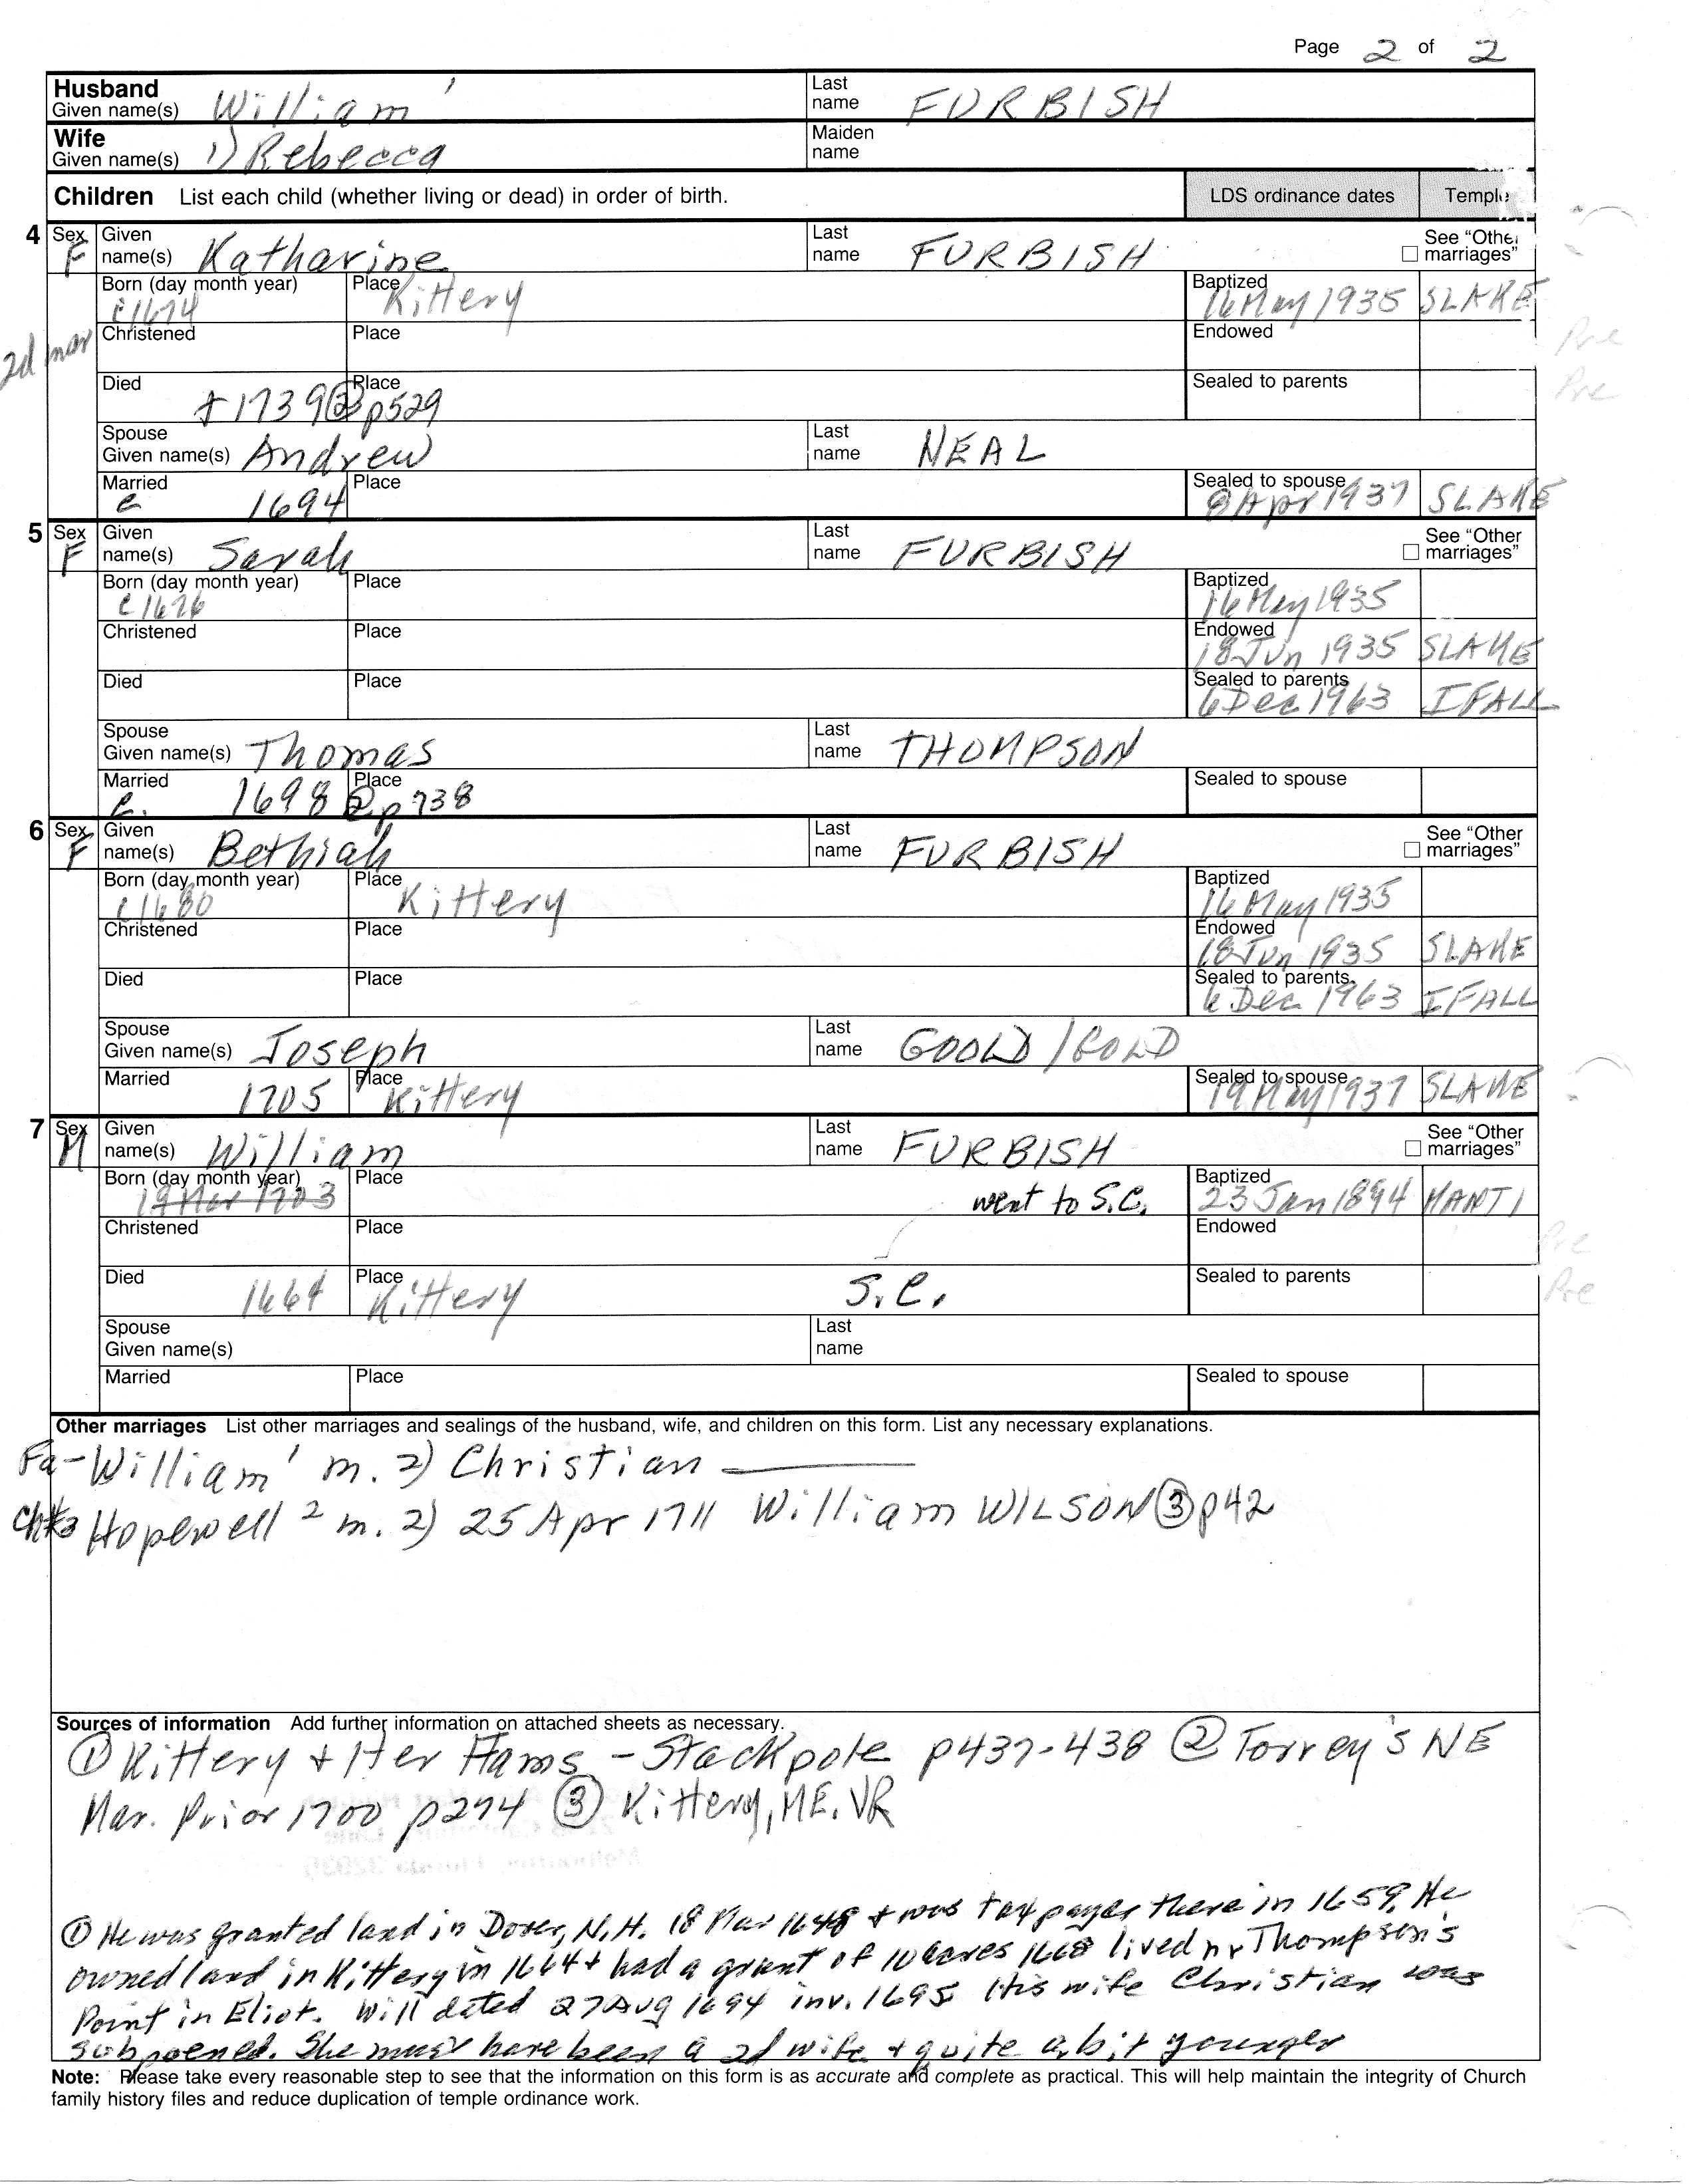 Page 2 of 2
Husband
Given name(s) William ' Last name FURBISH
Wife
Given name(s) 1) Rebecca Maiden name
Children List each child (whether living or dead) in order of birth. LDS ordinance dates Temple
4 Sex F Given name(s) Katharine Last name FURBISH See “Other marriages”
Born (day month year) c1674 Place Kittery Baptized 16 May 1935 SLAKE
2d mar
Christened Place Endowed
Pre
Died + 1739 ② p529 Place Sealed to parents
Pre
Spouse Given name(s) Andrew Last name NEAL
Married c 1694 Place Sealed to spouse 8 Apr 1937 SLAKE
5 Sex F Given name(s) Sarah Last name FURBISH See “Other marriages”
Born (day month year) c1676 Place Baptized 16 May 1935
Christened Place Endowed 18 Jun 1935 SLAKE
Died Place Sealed to parents 6 Dec 1963 IFALL
Spouse Given name(s) Thomas Last name THOMPSON
Married c. 1698 ② p738 Place Sealed to spouse
6 Sex F Given name(s) Bethiah Last name FURBISH See “Other marriages”
Born (day month year) c1680 Place Kittery Baptized 16 May 1935
Christened Place Endowed 18 Jun 1935 SLAKE
Died Place Sealed to parents 6 Dec 1963 IFALL
Spouse Given name(s) Joseph Last name GOOLD / GOLD
Married 1705 Place Kittery Sealed to spouse 19 May 1937 SLAKE
7 Sex M Given name(s) William Last name FURBISH See “Other marriages”
Born (day month year) 19 Mar 1703 Place went to S.C. Baptized 23 Jan 1894 MANTI
Christened Place Endowed
Pre
Died 1664 Place Kittery S.C. Sealed to parents
Pre
Spouse Given name(s) Last name
Married Place Sealed to spouse
Other marriages List other marriages and sealings of the husband, wife, and children on this form. List any necessary explanations.
Fa - William ' m. 2) Christian ———
Ch#3 Hopewell 2 m. 2) 25 Apr 1711 William WILSON ③ p42
Sources of information Add further information on attached sheets as necessary.
① Kittery + Her Fams - Stackpole p437-438 ② Torrey's NE
Mar. Prior 1700 p274 ③ Kittery, ME. VR
① He was granted land in Dover, N.H. 18 Mar 1648 + was taxpayer there in 1659. He
owned land in Kittery in 1664 + had a grant of 10 acres 1668 lived nr Thompson's
Point in Eliot. Will dated 27 Aug 1694 inv. 1695 His wife Christian was
subpoened. She must have been a 2d wife + quite a bit younger
Note: Please take every reasonable step to see that the information on this form is as accurate and complete as practical. This will help maintain the integrity of Church
family history files and reduce duplication of temple ordinance work.